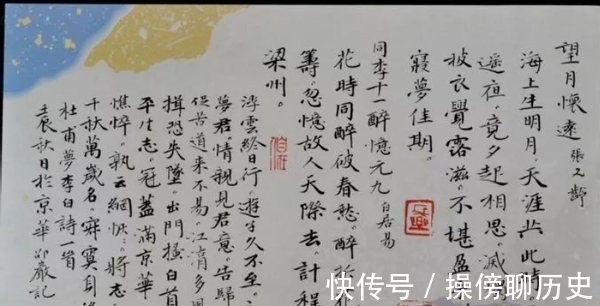 望月懷遠 張九齡
海上生明月。天涯共此時
遙夜。竟夕起相思。滅
披衣覺露滋。不堪盈
寢夢佳期。
同李十一醉憶元九 白居易
花時同醉破春愁。醉折
籌。忽憶故人天際去。計程
梁州。
浮雲終日行。遊子久不至。三
夢君情親見君意。告歸
促苦道来不易。江湖多風
楫恐失墜。出門搔白首
平生志。冠蓋滿京華
憔悴。孰云網恢。將老
千秋萬歲名。寂寞身後
杜甫夢李白詩一首
秋日於京華 記
快传号 / 操傍聊历史